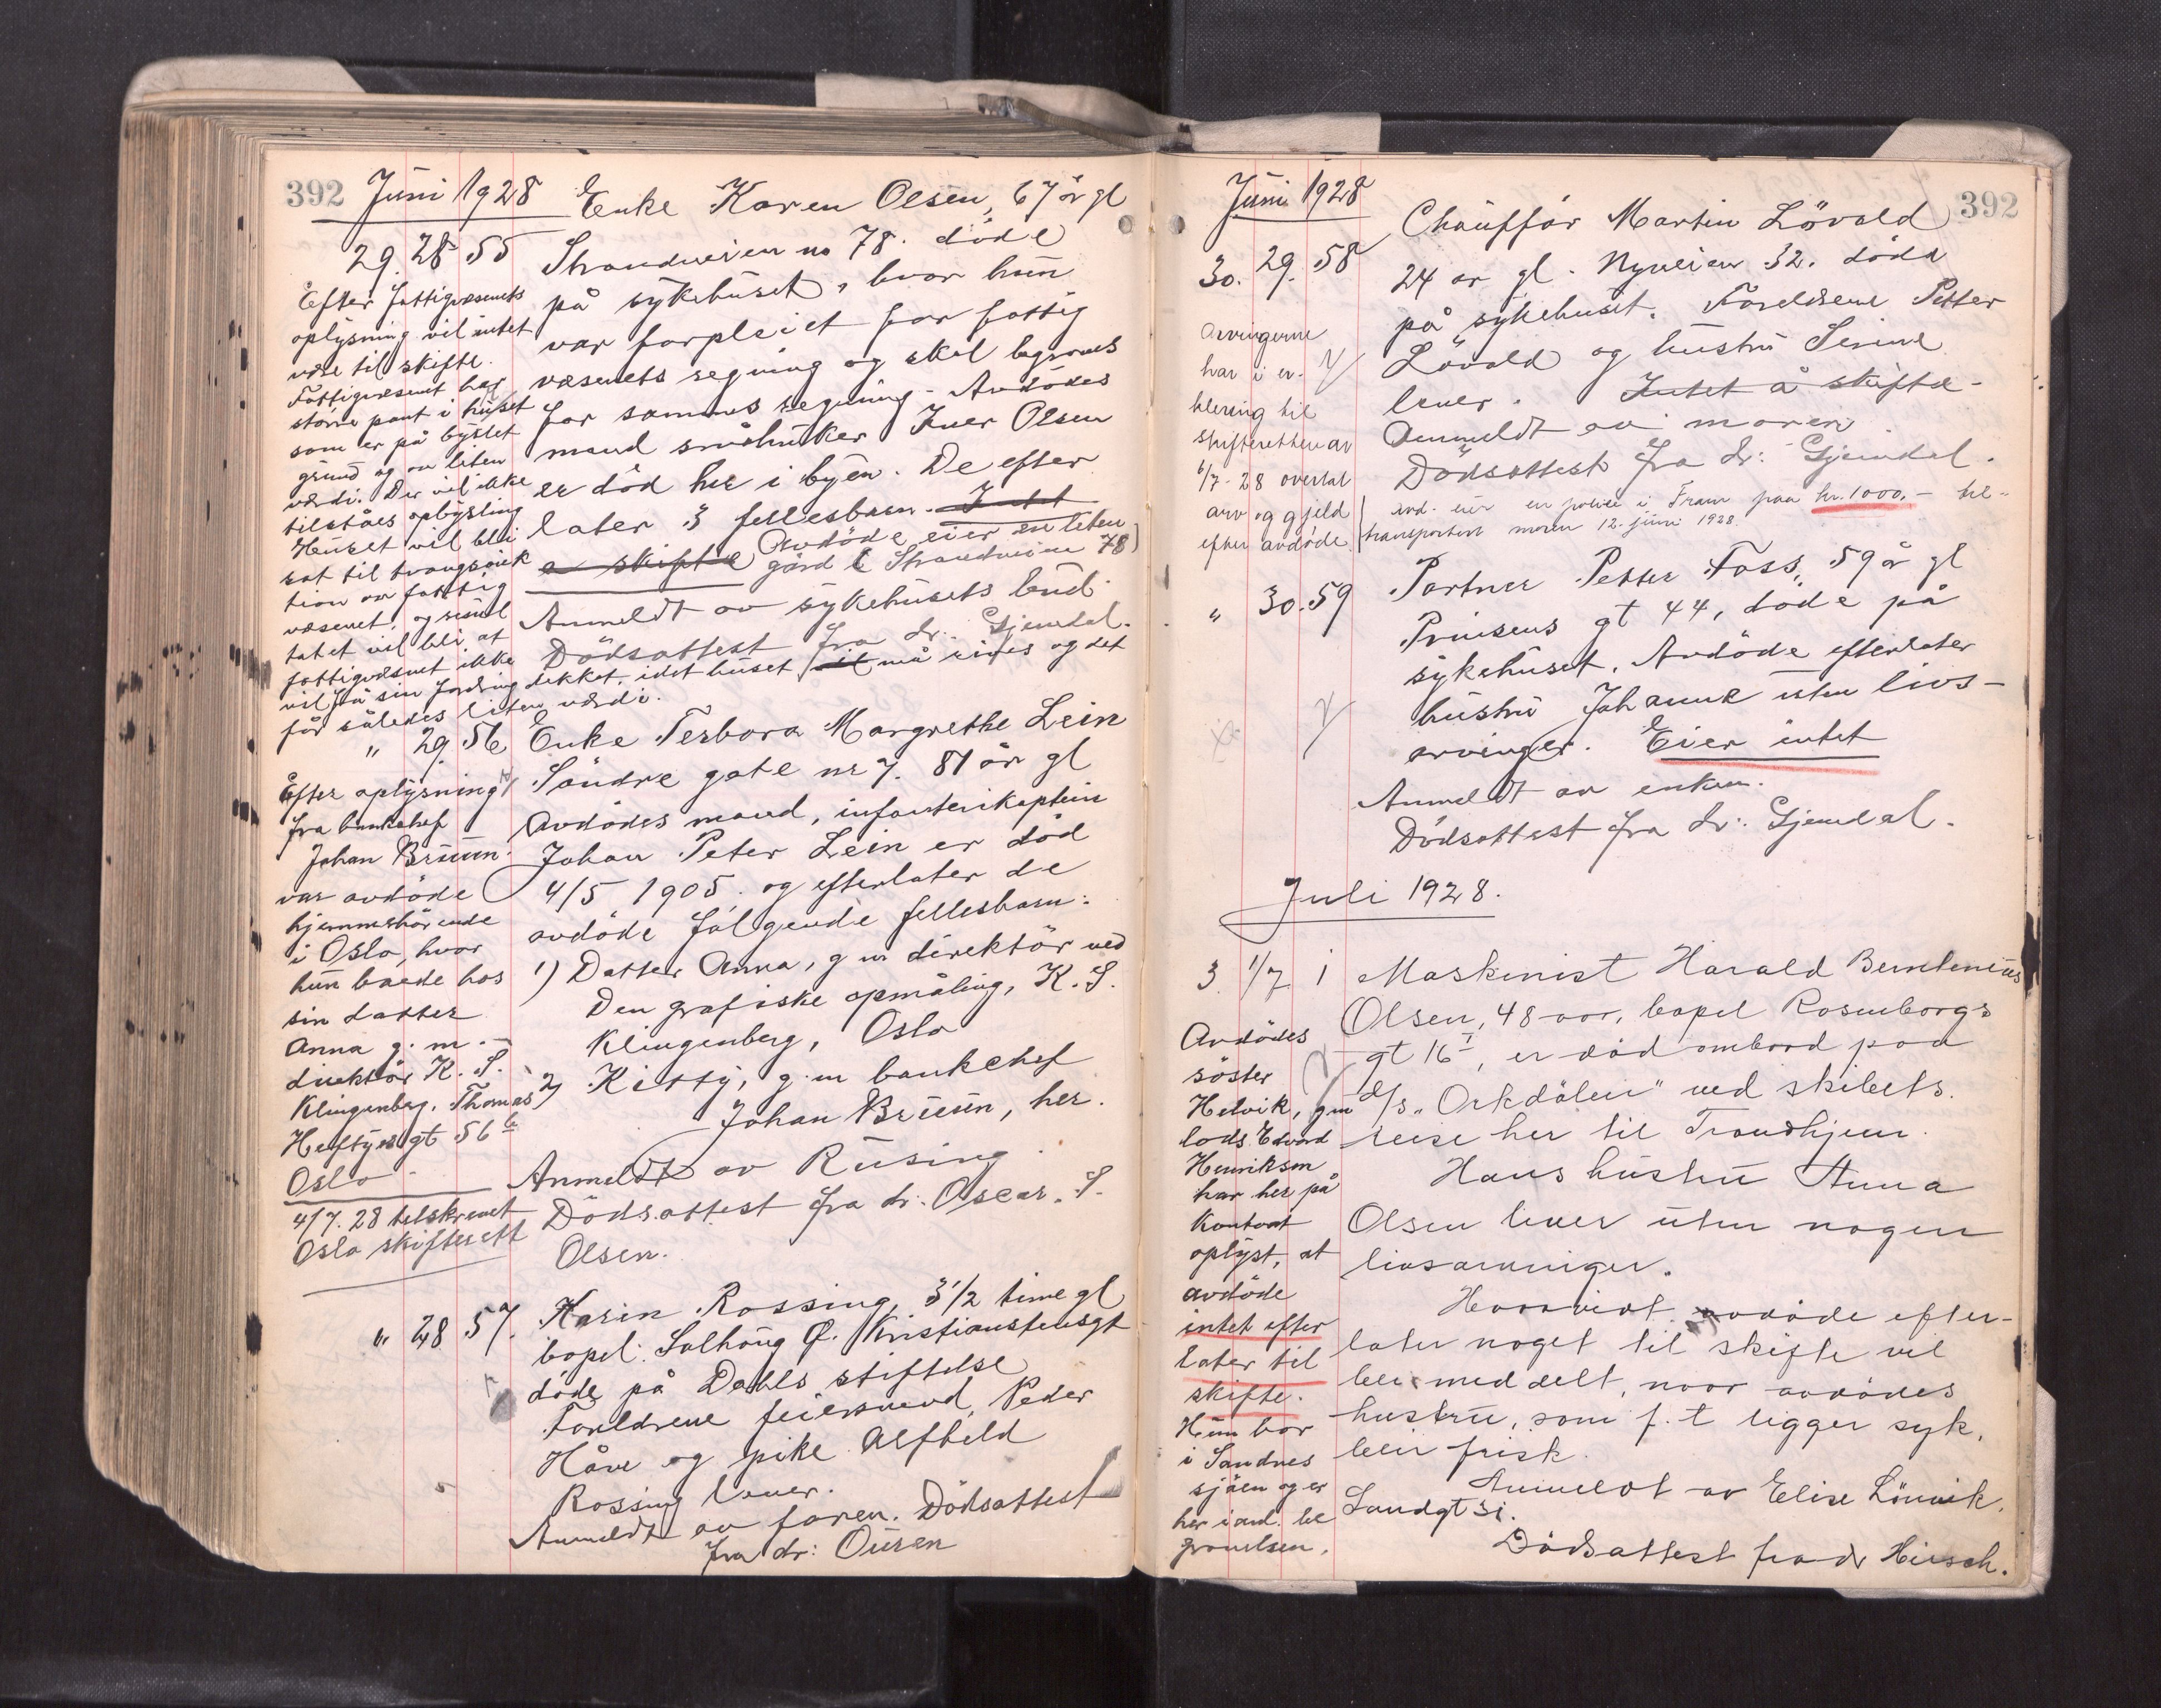 392 Juni 1928
Enke Karen Olsen, 67 år gl
29. 28 55 Strandveien no 78. döde
på sykehuset, hvor hun
var forpleiet for fattig
væsenets regning og skal begraves
for sammes regning. Avdödes
mand småhuker Iver Olsen
er död her i byen. De efter
later 3 fellesbarn. Intet
a skifte Avdöde eier en liten
gård i Strandveien 78
Anmeldt av sykehusets bud
Dödsattest fra dr. Gjemdal.
Efter fattigvæsenets
oplysning vil intet
være til skifte.
Fattigvæsenet har
större pant i huset
som er på bystet
grund og av liten
værdi. Der vil ikke
tilståes opbygning
Huset vil bli
sat til tvangsauk
tion av fattig
væsenet, og resul
tatet vil bli at
fattigvæsenet ikke
vil få sin fordring dekket, idet huset vil må rives og det
får således liten værdi.
" 29. 56 Enke Terbora Margrethe Lein
Söndre gate nr 7. 81 år gl
Avdödes mand, infanterikaptein
Johan Peter Lein er död
4/5 1905 og efterlater de
avdöde fölgende fellesbarn:
1) Datter Anna, g m direktör ved
Den grafiske opmåling, K. S.
Klingenberg, Oslo
2) Kitty, g. m bankchef
Johan Bruun, her.
Anmeldt av Rusing
Dödsattest fra dr: Oscar. S.
Olsen.
Efter oplysning
fra bankchef
Johan Bruun
var avdöde
hjemmehörende
i Oslo, hvor
hun boede hos
sin datter
Anna g. m.
direktör K. S.
Klingenberg. Thomas
Heftyesgt 56 b
Oslo
4/7. 28 tilskrevet
Oslo skifterett
" 28 57. Karin Rossing, 3 1/2 time gl
bopel: Solhaug Ø. Kristianstensgt
döde på Dahls stiftelse
Foreldrene feiersvend Peder
Håve og pike Alfhild
Rossing lever.
Anmeldt av faren. Dödsattest
fra dr: Ouren
Juni 1928 392
Chauffór Martin Lövald
30. 29. 58 24 ar gl. Nyveien 32. döde
på sykehuset. Foreldrene Petter
Lövald og hustru Serine
lever. Intet å skifte
Anmeldt av moren
Dödsattest fra dr: Gjemdal.
avd. eier en polise i Fram paa kr. 1000,- til-
transportert moren 12. juni 1928.
Arvingerne
har i er-
klering til
skifteretten av
6/7-28 overtat
arv og gjeld
efter avdöde.
" 30. 59 Portner Petter Foss, 59 år gl
Prinsens gt 44, döde på
sykehuset. Avdöde efterlater
hustru Johanne uten livs-
arvinger. Eier intet
Anmeldt av enken.
Dödsattest fra dr: Gjemdal.
Juli 1928.
3. 1/7 1 Maskinist Harald Berntenius
Olsen, 48 aar, bopel Rosenborgs
gt 16 I, er död ombord paa
d/s "Orkdölen" ved skibets
reise her til Trondhjem.
Hans hustru Anna
Olsen lever uten nogen
livsarvinger.
Hvorvidt avdöde efter-
later noget til skifte vil
bli meddelt, naar avdödes
hustru, som f. t ligger syk,
blir frisk.
Anmeldt av Elise Lönvik,
Sandgt 31.
Dödsattest fra dr Hirsch.
Avdödes
söster
Helvik, gm
lods Edvard
Henriksen
har her på
Kontoret
oplyst, at
avdöde
intet efter
later til
skifte.
Hun bor
i Sandnes
sjöen og er
her i anl. be
gravelsen.